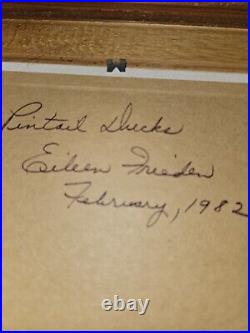 Pintail Ducks
Eileen Frieden
February, 1982